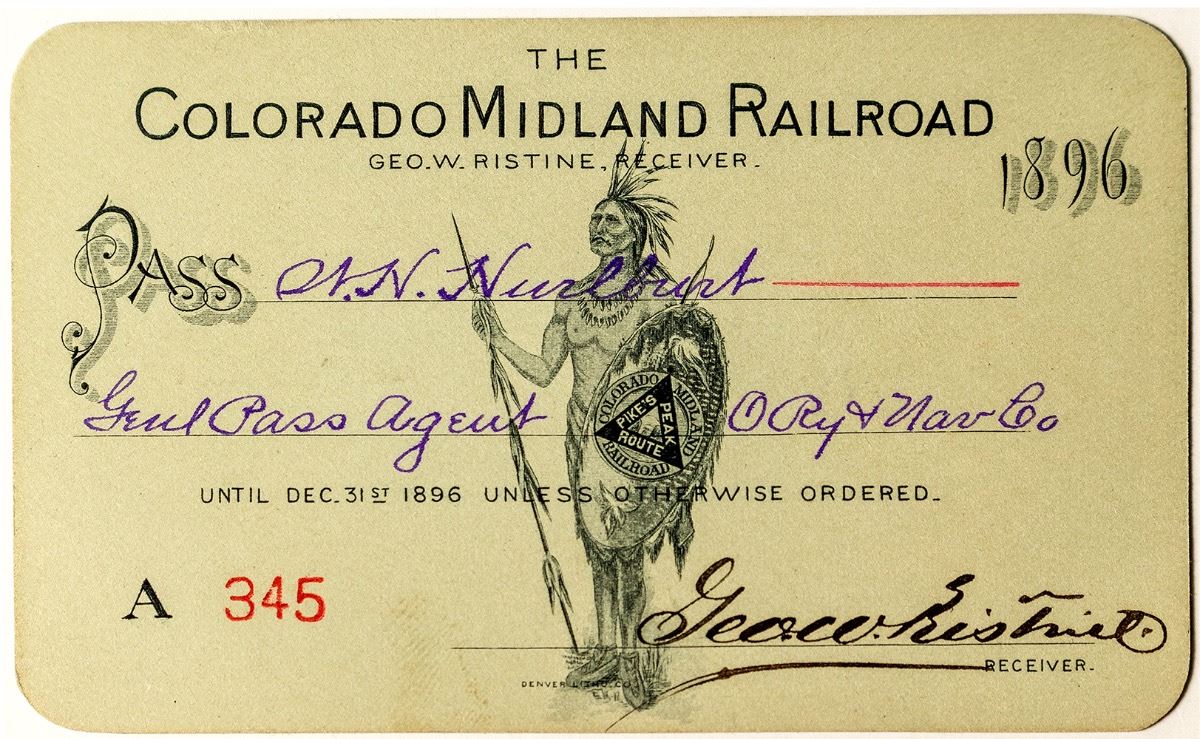 THE
COLORADO MIDLAND RAILROAD
GEO. W. RISTINE, RECEIVER.
1896
PASS W. H. Hurlburt
Genl Pass Agent O Ry & Nav Co
COLORADO MIDLAND RAILROAD
PIKE'S PEAK ROUTE
UNTIL DEC. 31ST 1896 UNLESS OTHERWISE ORDERED.
A 345
Geo. W. Ristine.
RECEIVER.
DENVER LITHO. CO.